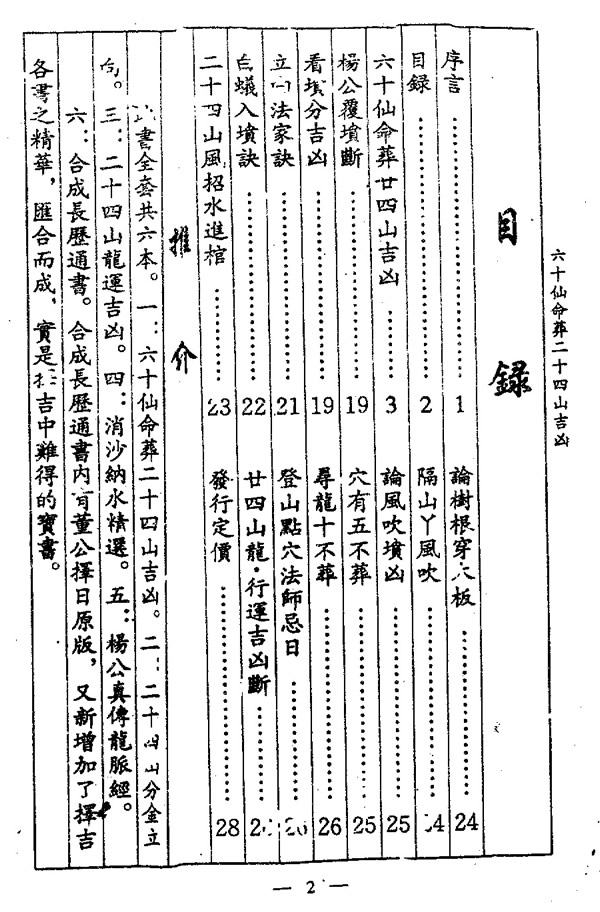 六十仙命葬二十四山吉凶
目錄
序言……1
目録……2
六十仙命葬廿四山吉凶……3
楊公覆墳斷……19
看墳分吉凶……19
立向法家訣……21
白蟻入墳訣……22
二十四山風招水進棺……23
論樹根穿 板……24
隔山丫風吹…… 4
論風吹墳凶……25
穴有五不葬……25
尋龍十不葬……26
登山點穴法師忌日…… 6
廿四山龍·行運吉凶斷……2
發行定價……28
推介
書全套共六本。一：六十仙命葬二十四山吉凶。二：二十四山分金立
向。三：二十四山龍運吉凶。四：消沙納水精選。五：楊公真傳龍脈經。
六：合成長歷通書。合成長歷通書内有董公擇日原版，又新增加了擇吉
各書之精華，匯合而成，實是 吉中難得的寶書。
— 2 —